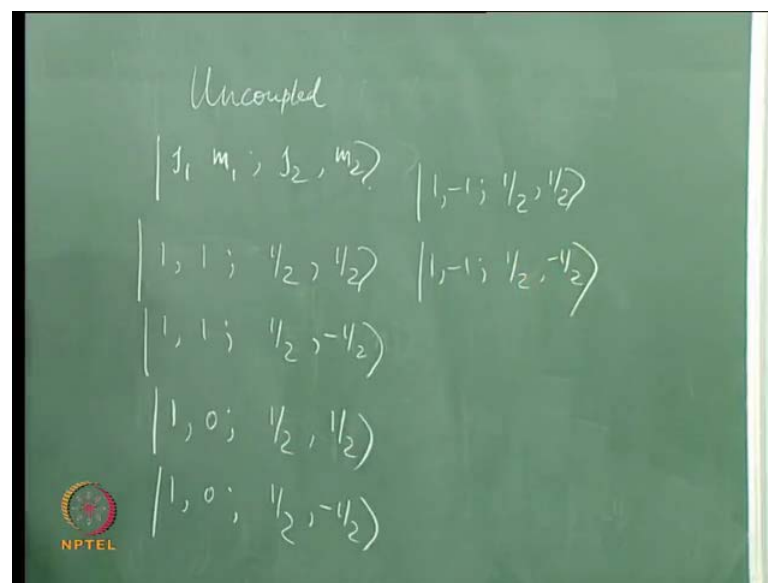 Uncoupled
|J₁ m₁ ; J₂ , m₂⟩
|1, 1 ; 1/2 , 1/2⟩
|1, 1 ; 1/2 , -1/2⟩
|1, 0 ; 1/2 , 1/2⟩
|1, 0 ; 1/2 , -1/2⟩
|1, -1 ; 1/2 , 1/2⟩
|1, -1 ; 1/2 , -1/2⟩
NPTEL